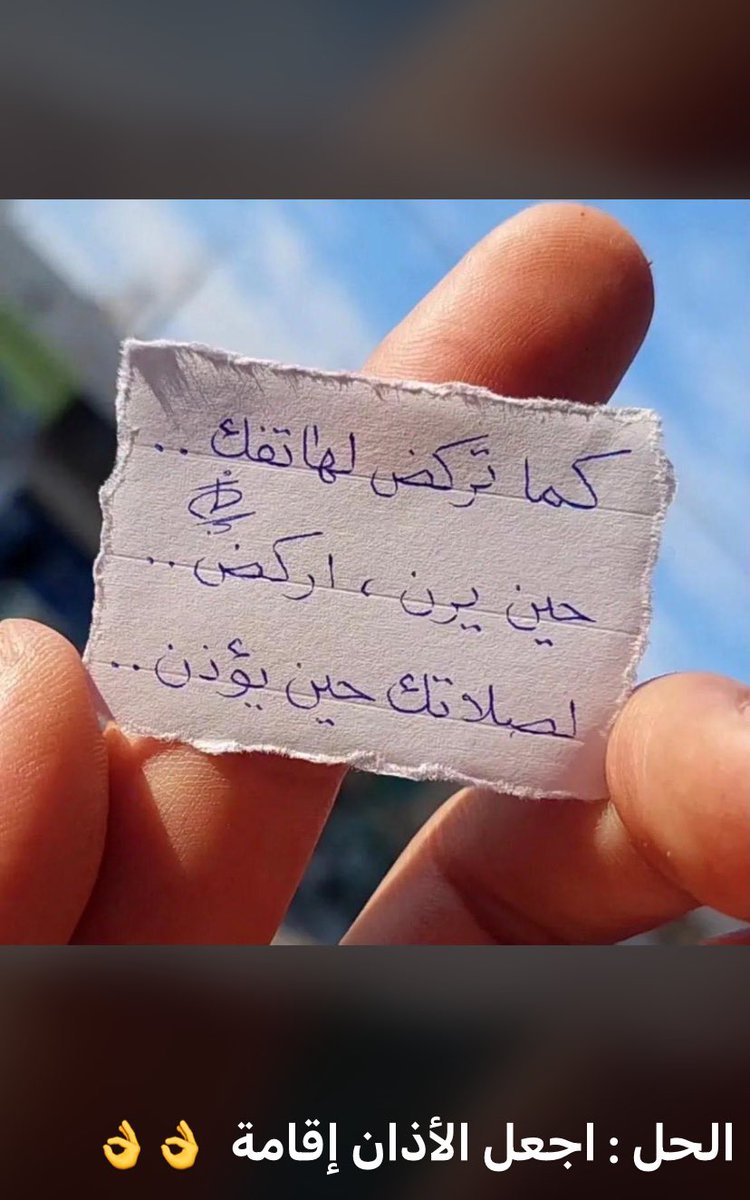 كما تركض لهاتفك ..
حين يرن ، اركض ..
لصلاتك حين يؤذن ..
الحل : اجعل الأذان إقامة 👌👌